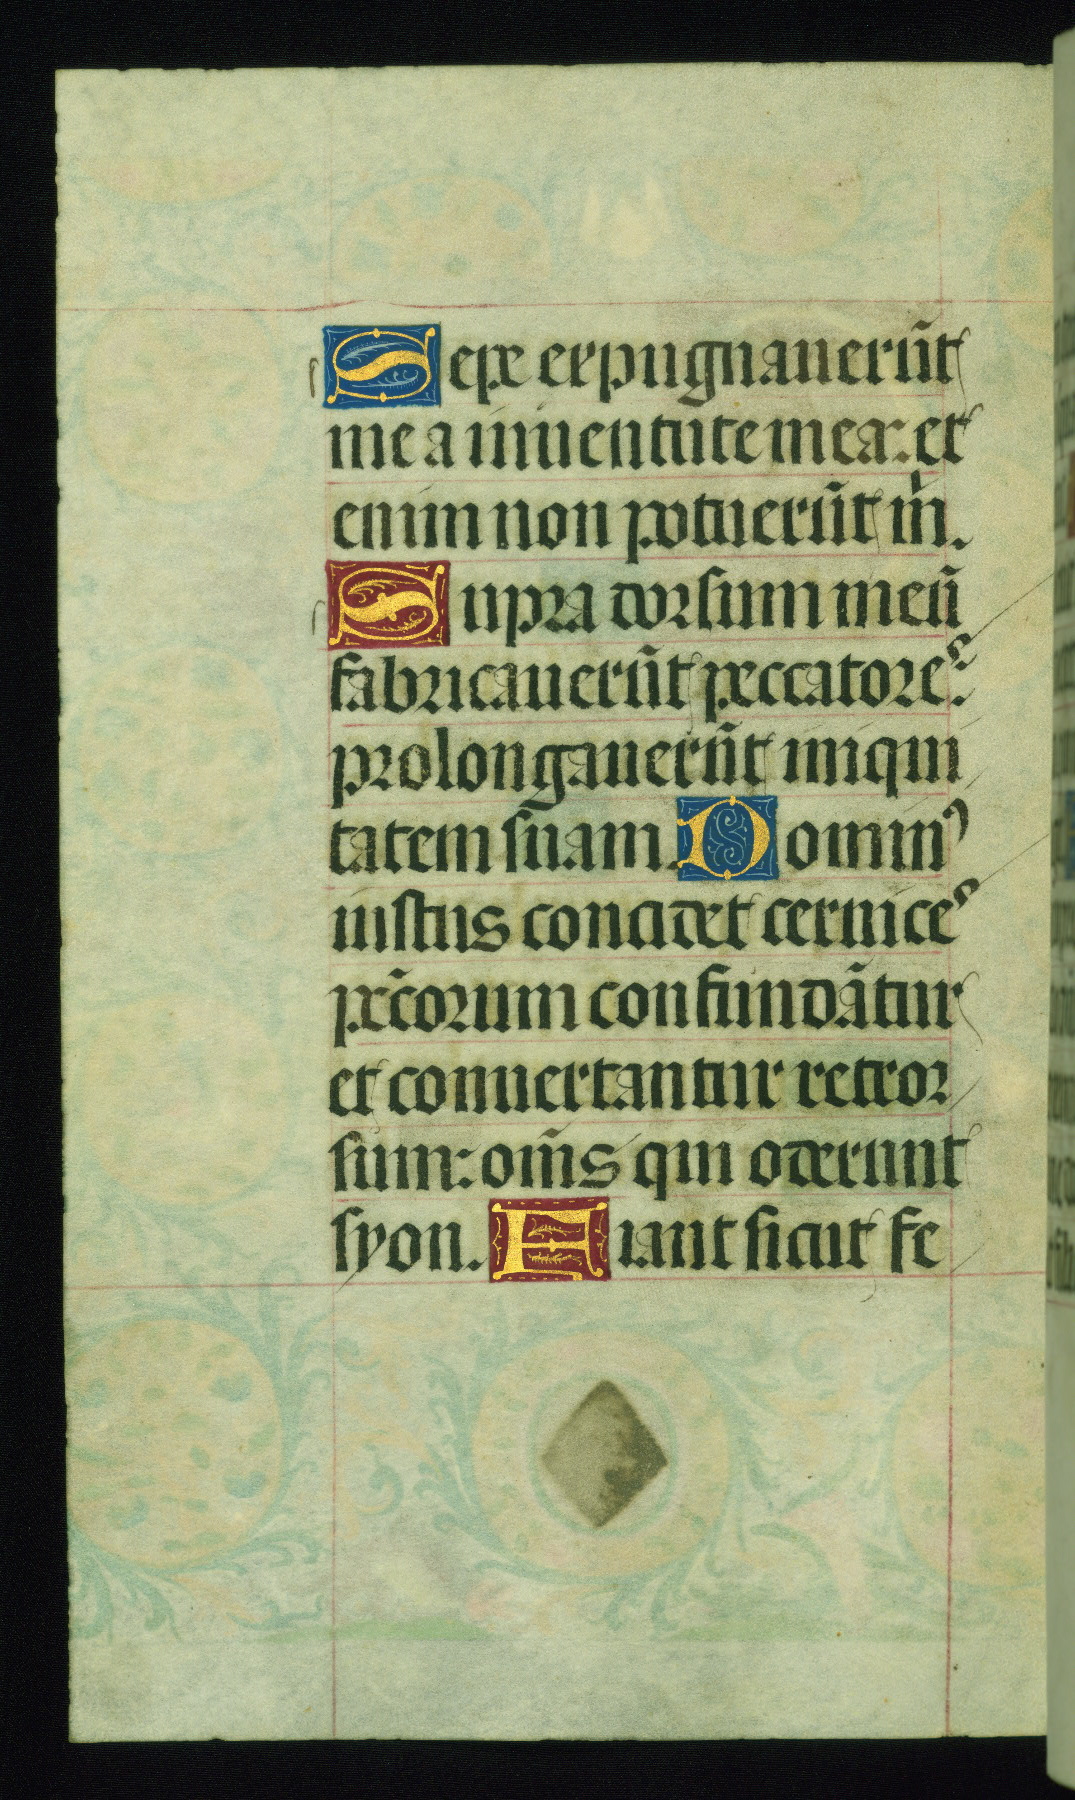 Sepe expugnauerũt
me a iuuentute mea: et
enim non potuerũt m̃.
Supra dorsum meũ
fabricauerũt peccatores:
prolongauerũt iniqui
tatem suam. Dominꝰ
iustus concidet ceruices
pc̃corum confundãtur
et conuertantur retror
sum: om̃s qui oderunt
syon. Fiant sicut fe